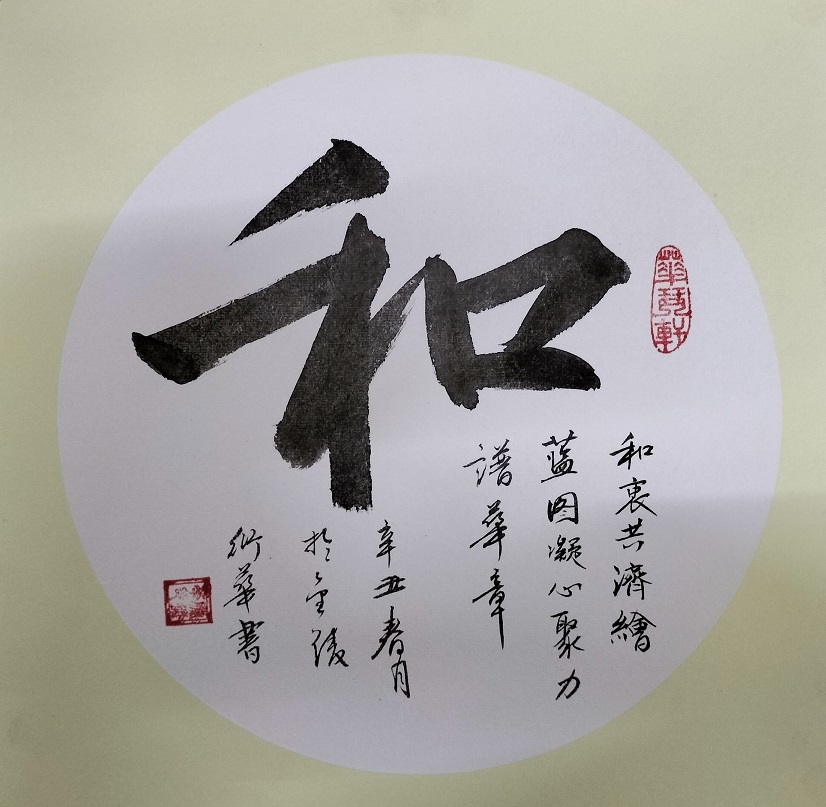 和
和衷共濟繪
蓝图凝心聚力
譜華章
辛丑春月
於金陵
衍華書
華琴軒